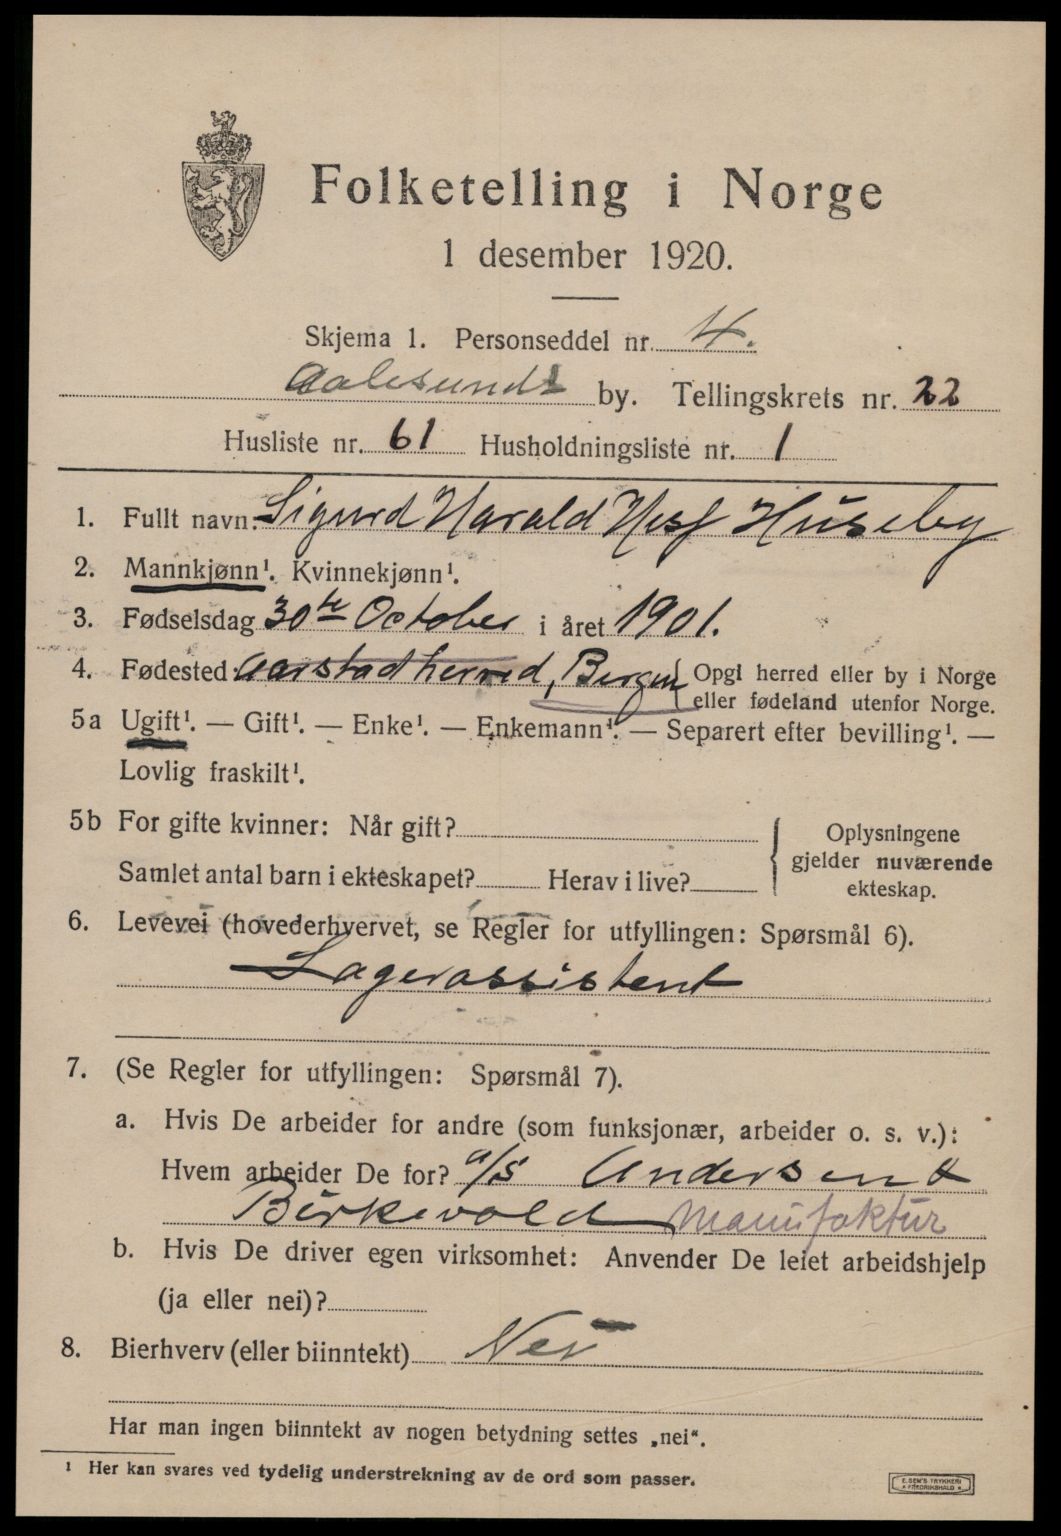 Folketelling i Norge
1 desember 1920.
Skjema 1. Personseddel nr. 4.
Aalesunds by. Tellingskrets nr. 22
Husliste nr. 61 Husholdningsliste nr. 1
1. Fullt navn: Sigurd Harald Huseby
2. Mannkjønn¹. Kvinnekjønn¹.
3. Fødselsdag 30te October i året 1901.
4. Fødested Aarstad herred, Bergen { Opgi herred eller by i Norge
eller fødeland utenfor Norge.
5a Ugift¹. — Gift¹. — Enke¹. — Enkemann¹. — Separert efter bevilling¹. —
Lovlig fraskilt¹.
5b For gifte kvinner: Når gift?
Samlet antal barn i ekteskapet? Herav i live?
{ Oplysningene
gjelder nuværende
ekteskap.
6. Levevei (hovederhvervet, se Regler for utfyllingen: Spørsmål 6).
Lagerassistent
7. (Se Regler for utfyllingen: Spørsmål 7).
a. Hvis De arbeider for andre (som funksjonær, arbeider o. s. v.):
Hvem arbeider De for? A/S Andersen &
Birkevold Manufaktur
b. Hvis De driver egen virksomhet: Anvender De leiet arbeidshjelp
(ja eller nei)?
8. Bierhverv (eller biinntekt) Nei
Har man ingen biinntekt av nogen betydning settes „nei“.
¹ Her kan svares ved tydelig understrekning av de ord som passer.
E. SEM'S TRYKKERI
FREDRIKSHALD